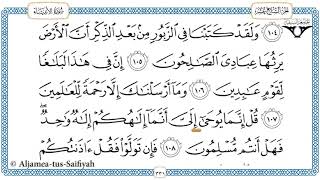 سورة الأنبياء
١٠٤ وَلَقَدْ كَتَبْنَا فِي ٱلزَّبُورِ مِنۢ بَعْدِ ٱلذِّكْرِ أَنَّ ٱلْأَرْضَ
يَرِثُهَا عِبَادِيَ ٱلصَّـٰلِحُونَ ١٠٥ إِنَّ فِي هَـٰذَا لَبَلَـٰغًا
لِّقَوْمٍ عَـٰبِدِينَ ١٠٦ وَمَآ أَرْسَلْنَـٰكَ إِلَّا رَحْمَةً لِّلْعَـٰلَمِينَ
١٠٧ قُلْ إِنَّمَا يُوحَىٰٓ إِلَيَّ أَنَّمَآ إِلَـٰهُكُمْ إِلَـٰهٌ وَٰحِدٌ ۖ
فَهَلْ أَنتُم مُّسْلِمُونَ ١٠٨ فَإِن تَوَلَّوْا۟ فَقُلْ ءَاذَنتُكُمْ
© Aljamea-tus-Saifiyah
٣٣١